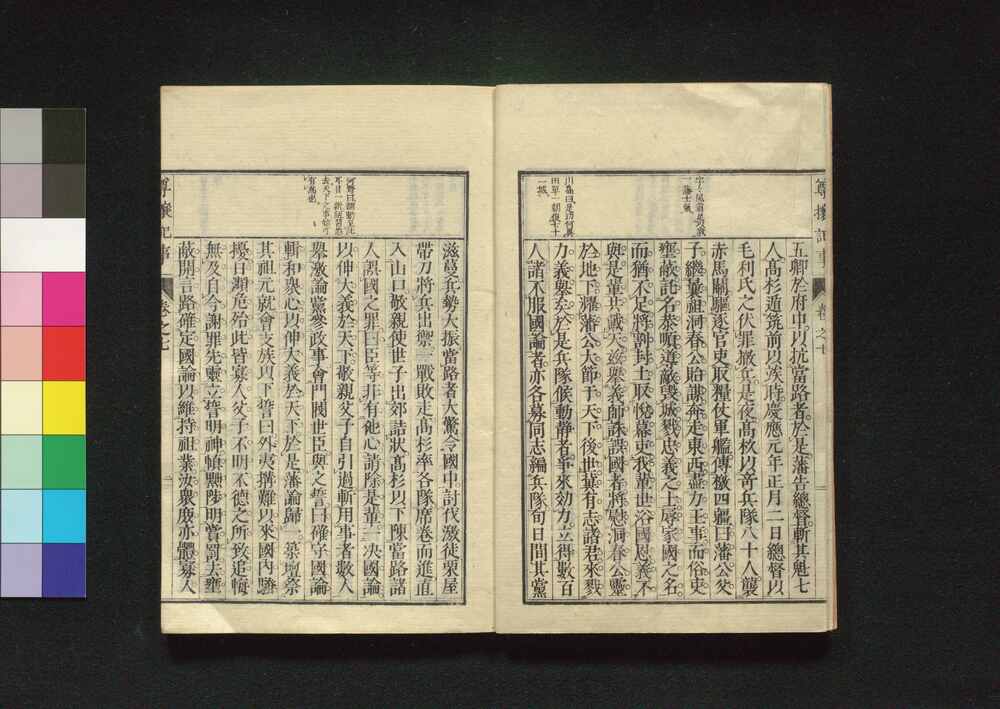 尊攘記事
卷之七
五卿於府中以抗當路者於是藩告總督斬其魁七
人高杉遁筑前以俟時慶應元年正月二日總督以
毛利氏之伏罪撤兵是夜高杉以奇兵隊八十人襲
赤馬關驅逐官吏取糧仗軍艦傳檄四疆曰藩公父
子繼襲祖洞春公貽謀奔走東西盡力王事而俗吏
壅蔽託名恭順遵敵毀城戮忠義之士辱家國之名
而猶不足將割封土取悅幕吏我輩世浴國恩義不
與是輩共戴天茲舉義師誅誤國者將慰洞春公靈
於地下雪藩公大節于天下後世輩有志諸君來戮
力義舉矣於是兵隊候動靜者爭來効力立得數百
人諸不服國論者亦各募同志編兵隊旬日間其黨
川島曰是功何異
田單一朝復七十
一城
滋蔓兵勢大振當路者大驚令國中討伐激徒粟屋
帶刀將兵出禦三戰敗走高杉率各隊席卷而進直
入山口敬親使世子出郊詰狀高杉以下陳當路諸
人誤國之罪曰臣等非有他心請除是輩一決國論
以伸大義於天下敬親父子自引過斬用事者數人
舉激論黨參政事會門閥世臣與之誓曰確守國論
輯和眾心以伸大義於天下於是藩論歸一築壇祭
其祖元就會支族以下誓曰外夷搆難以來國內騷
擾日瀕危殆此皆寡人父子不明不德之所致追悔
無及自今謝罪先靈立誓明神愼黜陟明賞罰去壅
蔽開言路確定國論以維持祖業汝眾庶亦體寡人
尊攘記事
卷之七